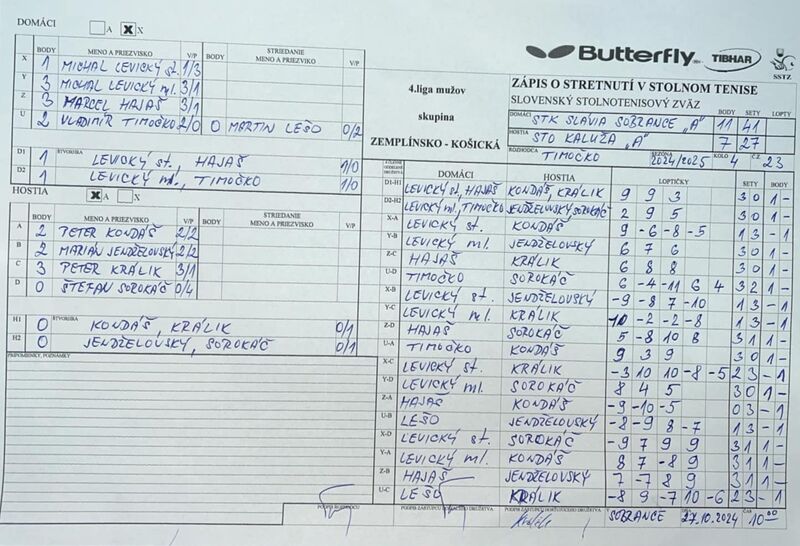 DOMÁCI A X X
BODY MENO A PRIEZVISKO V/P BODY STRIEDANIE MENO A PRIEZVISKO V/P
X 1 MICHAL LEVICKÝ st. 1/3
Y 3 MICHAL LEVICKÝ ml. 3/1
Z 3 MARCEL HAJAŠ 3/1
U 2 VLADIMÍR TIMOČKO 2/0 0 MARTIN LEŠO 0/2
D1 1 ŠTVORHRA LEVICKÝ st., HAJAŠ 1/0
D2 1 LEVICKÝ ml., TIMOČKO 1/0
HOSTIA X A X
BODY MENO A PRIEZVISKO V/P BODY STRIEDANIE MENO A PRIEZVISKO V/P
A 2 PETER KONDÁŠ 2/2
B 2 MARIAN JENDŽELOVSKÝ 2/2
C 3 PETER KRÁLIK 3/1
D 0 ŠTEFAN SOROKÁČ 0/4
H1 0 ŠTVORHRA KONDÁŠ, KRÁLIK 0/1
H2 0 JENDŽELOVSKÝ, SOROKÁČ 0/1
PRIPOMIENKY, POZNÁMKY
PODPIS ROZHODCU
Butterfly TIBHAR SSTZ
4.liga mužov
skupina
ZEMPLÍNSKO - KOŠICKÁ
ZÁPIS O STRETNUTÍ V STOLNOM TENISE
SLOVENSKÝ STOLNOTENISOVÝ ZVÄZ
BODY SETY LOPTY
DOMÁCI STK SLÁVIA SOBRANCE „A" 11 41
HOSTIA STO KALUŽA „A" 7 27
ROZHODCA TIMOČKO SEZÓNA 2024/2025 KOLO 4 Č.Z. 23
DOMÁCI HOSTIA LOPTIČKY SETY BODY
D1-H1 LEVICKÝ st, HAJAŠ KONDÁŠ, KRÁLIK 9 9 3 3 0 1 -
D2-H2 LEVICKÝ ml., TIMOČKO JENDŽELOVSKÝ, SOROKÁČ 2 9 5 3 0 1 -
X-A LEVICKÝ st. KONDÁŠ 9 -6 -8 -5 1 3 - 1
Y-B LEVICKÝ ml. JENDŽELOVSKÝ 6 7 6 3 0 1 -
Z-C HAJAŠ KRÁLIK 6 8 8 3 0 1 -
U-D TIMOČKO SOROKÁČ 6 -4 -11 6 4 3 2 1 -
X-B LEVICKÝ st. JENDŽELOVSKÝ -9 -8 7 -10 1 3 - 1
Y-C LEVICKÝ ml. KRÁLIK 10 -2 -2 -8 1 3 - 1
Z-D HAJAŠ SOROKÁČ 5 -8 10 8 3 1 1 -
U-A TIMOČKO KONDÁŠ 9 3 9 3 0 1 -
X-C LEVICKÝ st. KRÁLIK -3 10 10 -8 -5 2 3 - 1
Y-D LEVICKÝ ml. SOROKÁČ 8 4 5 3 0 1 -
Z-A HAJAŠ KONDÁŠ -9 -10 -5 0 3 - 1
U-B LEŠO JENDŽELOVSKÝ -8 -9 8 -7 1 3 - 1
X-D LEVICKÝ st. SOROKÁČ -9 7 9 9 3 1 1 -
Y-A LEVICKÝ ml. KONDÁŠ 8 7 -8 9 3 1 1 -
Z-B HAJAŠ JENDŽELOVSKÝ 7 -7 8 9 3 1 1 -
U-C LEŠO KRÁLIK -8 9 -7 10 -6 2 3 - 1
PODPIS ZÁSTUPCU DOMÁCEHO DRUŽSTVA PODPIS ZÁSTUPCU HOSŤUJÚCEHO DRUŽSTVA V SOBRANCE 27.10.2024 ČAS 10:00